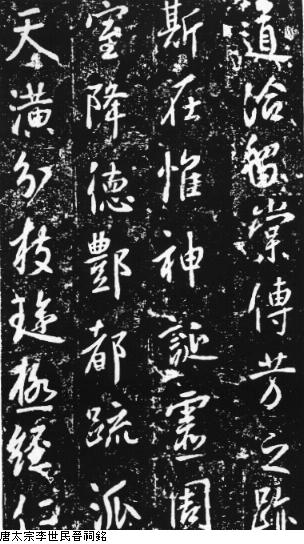 道洽留棠傳芳之跡
斯在惟神誕靈周
室降德酆都疏派
天潢分枝璇極經仁
唐太宗李世民晉祠銘